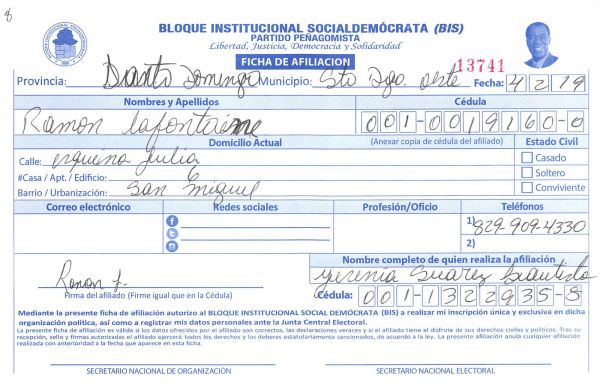 8
BLOQUE INSTITUCIONAL SOCIALDEMÓCRATA (BIS)
PARTIDO PEÑAGOMISTA
Libertad, Justicia, Democracia y Solidaridad
FICHA DE AFILIACION
13741
Provincia: Santo Domingo Municipio: Sto Dgo oeste Fecha: 4/2/19
Nombres y Apellidos Cédula
Ramon lafontaine 001-0019160-0
Domicilio Actual (Anexar copia de cédula del afiliado) Estado Civil
Calle: esquina Julia Casado
#Casa / Apt. / Edificio: 6 Soltero
Barrio / Urbanización: San Miguel Conviviente
Correo electrónico Redes sociales Profesión/Oficio Teléfonos
1) 829-909-4330
2)
Nombre completo de quien realiza la afiliación
Ramon f. Yesenia Suarez Bautista
Firma del afiliado (Firme igual que en la Cédula) Cédula: 001-1322935-8
Mediante la presente ficha de afiliación autorizo al BLOQUE INSTITUCIONAL SOCIAL DEMÓCRATA (BIS) a realizar mi inscripción única y exclusiva en dicha
organización política, así como a registrar mis datos personales ante la Junta Central Electoral.
La presente ficha de afiliación es válida si los datos ofrecidos por el afiliado son correctos, las declaraciones veraces y si el afiliado tiene el disfrute de sus derechos civiles y políticos. Tras su
recepción, sello y firmas autorizadas el afiliado ejercerá todos los derechos y los deberes estatutariamente sancionados, de acuerdo a la ley. La presente afiliación anula cualquier afiliación
realizada con anterioridad a la fecha que aparece en esta ficha.
SECRETARIO NACIONAL DE ORGANIZACIÓN SECRETARIO NACIONAL ELECTORAL